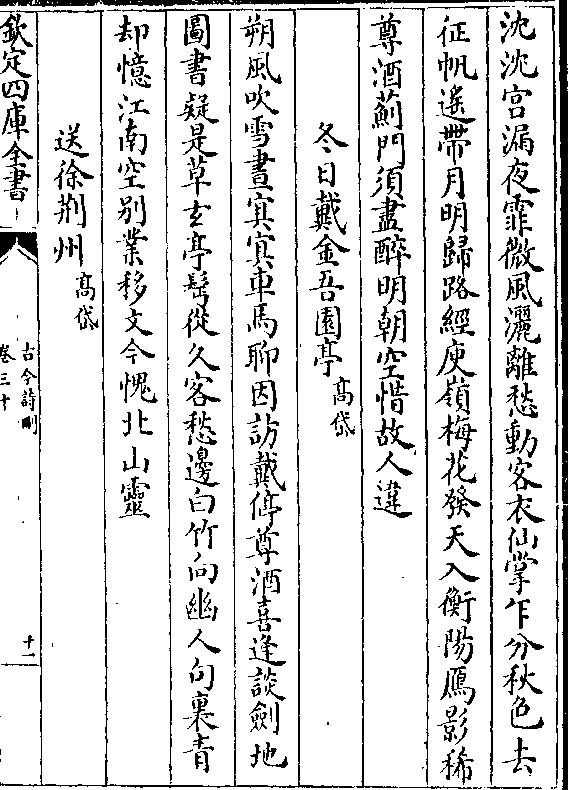 沈沈宫漏夜霏微風灑離愁動客衣仙掌乍分秋色去
征帆遙帶月明歸路經庾嶺梅花發天入衡陽鴈影稀
尊酒薊門須盡醉明朝空惜故人違
冬日戴金吾園亭高岱
朔風吹雪晝冥冥車馬聊因訪戴停尊酒喜逢談劍地
圖書疑是草玄亭髩從久客愁邊白竹向幽人句裏青
却憶江南空别業移文今愧北山靈
送徐荆州高岱
欽定四庫全書
古今詩刪
卷三十
十一